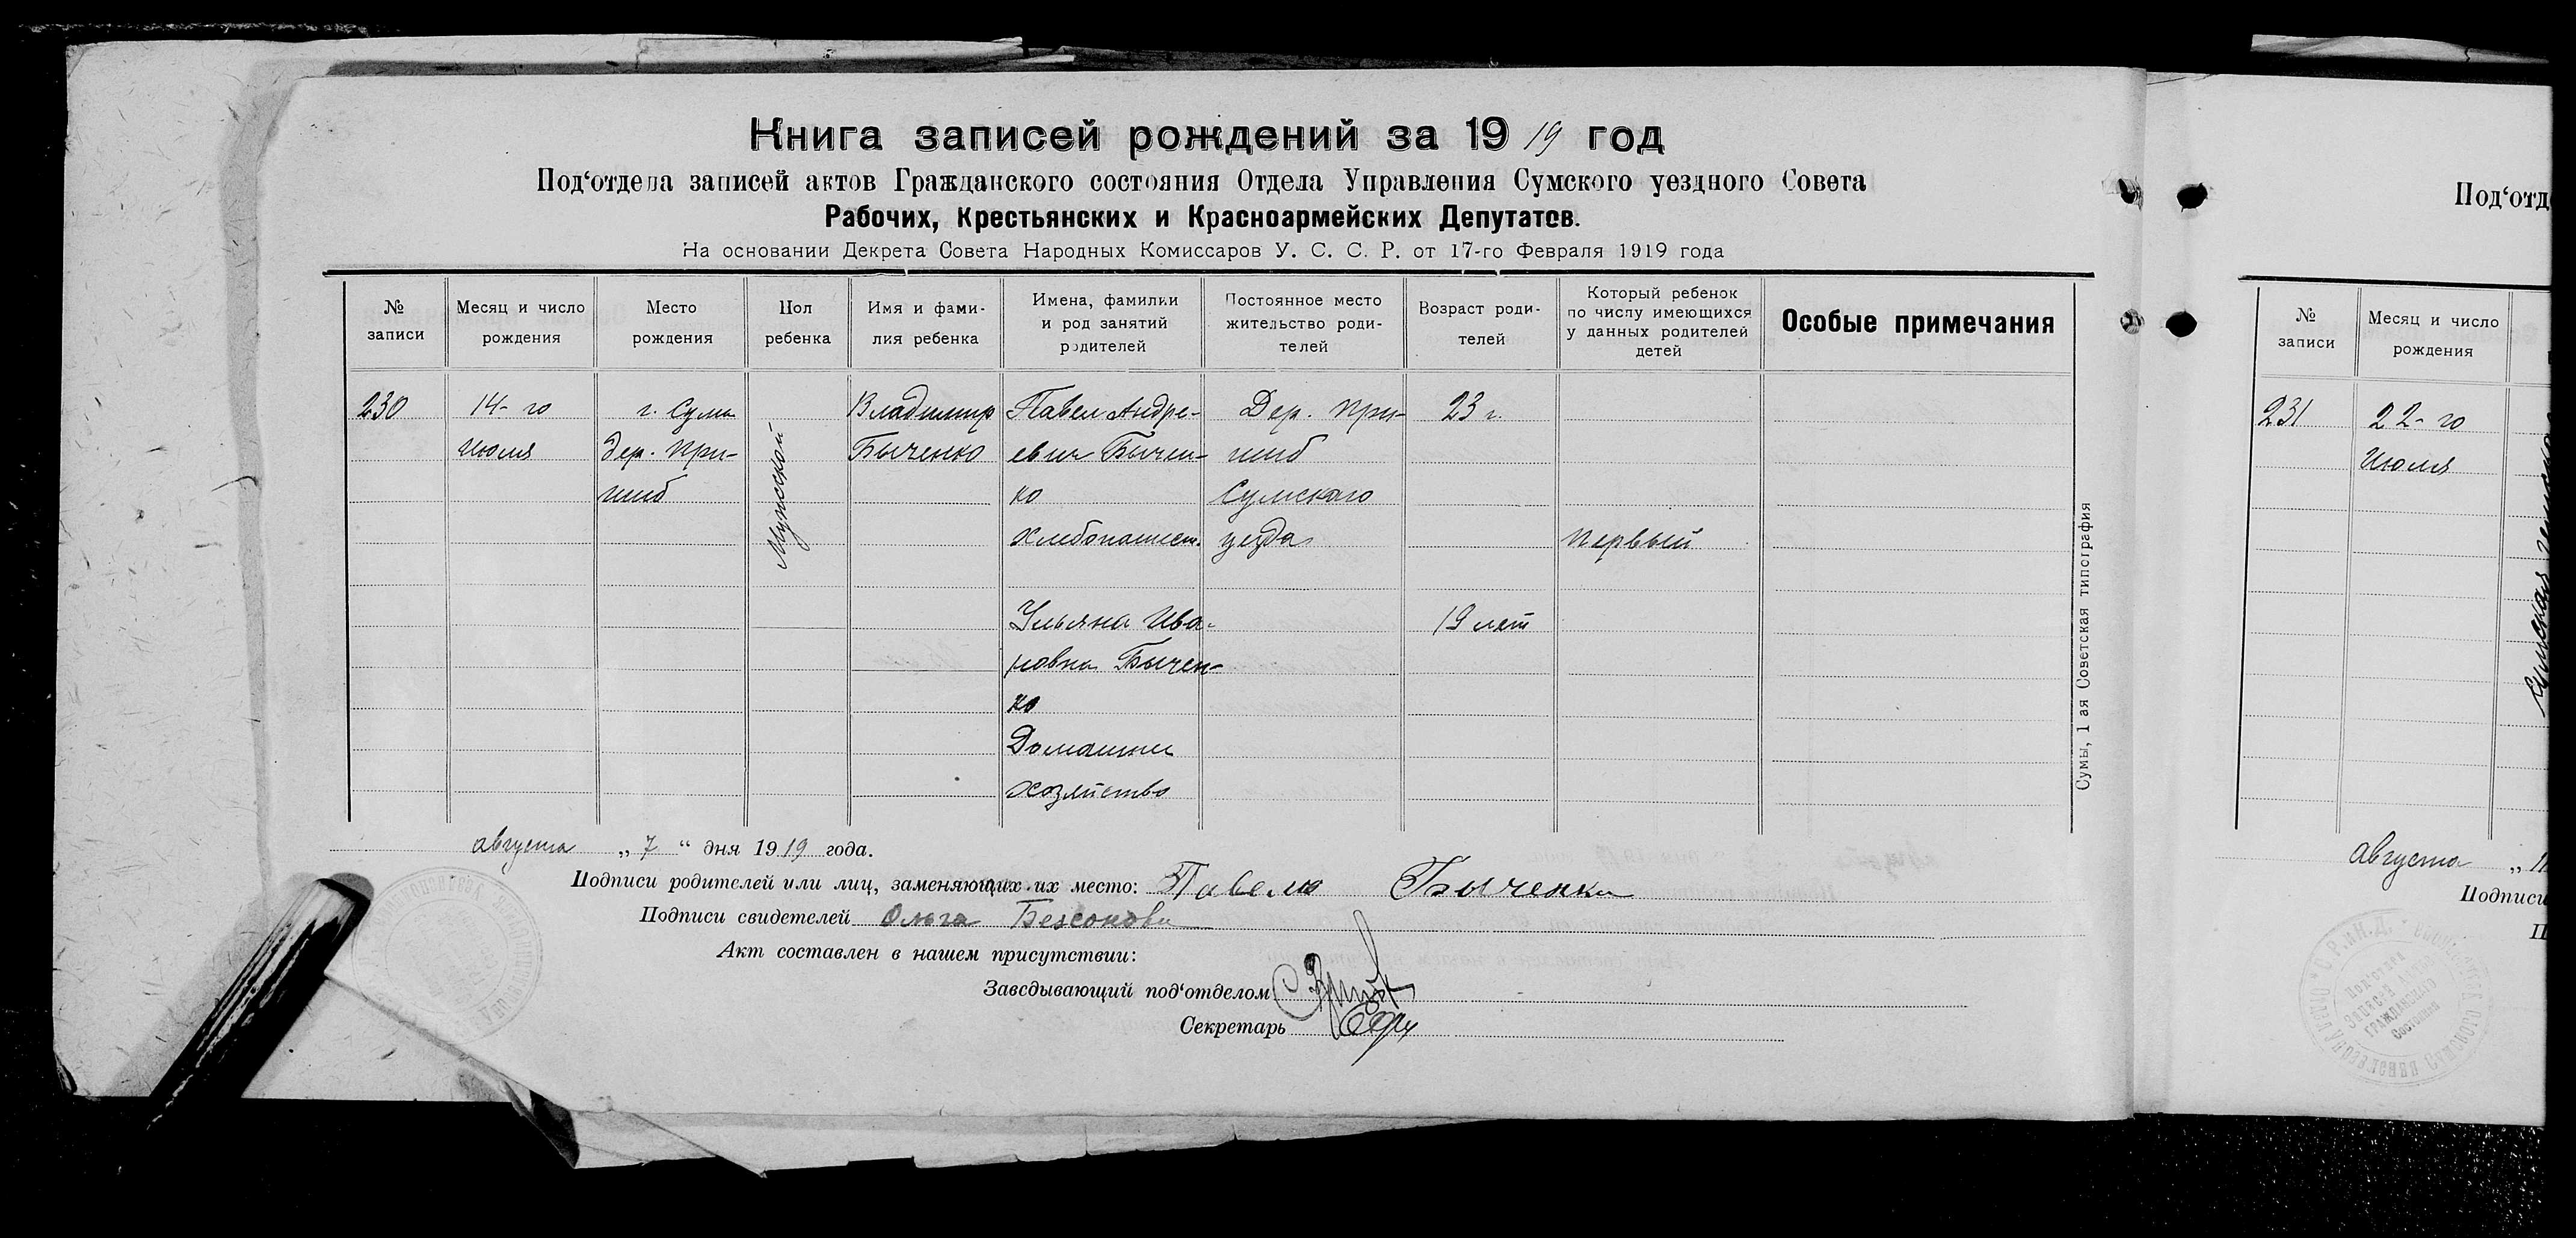 Книга записей рождений за 1919 год
Под‘отдела записей актов Гражданского состояния Отдела Управления Сумского уездного Совета
Рабочих, Крестьянских и Красноармейских Депутатов.
На основании Декрета Совета Народных Комиссаров У. С. С. Р. от 17-го Февраля 1919 года
№ записи
Месяц и число рождения
Место рождения
Пол ребенка
Имя и фами-
лия ребенка
Имена, фамилии
и род занятий
родителей
Постоянное место
жительство роди-
телей
Возраст роди-
телей
Который ребенок
по числу имеющихся
у данных родителей
детей
Особые примечания
230
14-го
июля
г. Сумы
дер. При-
шиб
Мужской
Владимир
Быченко
Павел Андре-
евич Бычен-
ко
Хлебопашест.
Ульяна Ива-
новна Бычен-
ко
Домашнее
хозяйство
Дер. При-
шиб
Сумского
уезда
23 г.
19 лет
первый
Сумы, 1 ая Советская типография
августа „ 7 “ дня 1919 года.
Подписи родителей или лиц, заменяющих их место: Павело Быченко
Подписи свидетелей Ольга Безсонова
Акт составлен в нашем присутствии:
Заведывающий под‘отделом
Секретарь
Под‘отд
№
записи
Месяц и число
рождения
231
22-го
Июля
августа
Подписи
Под‘отдел
Запис-й Актов
Гражданскаго
Состояния